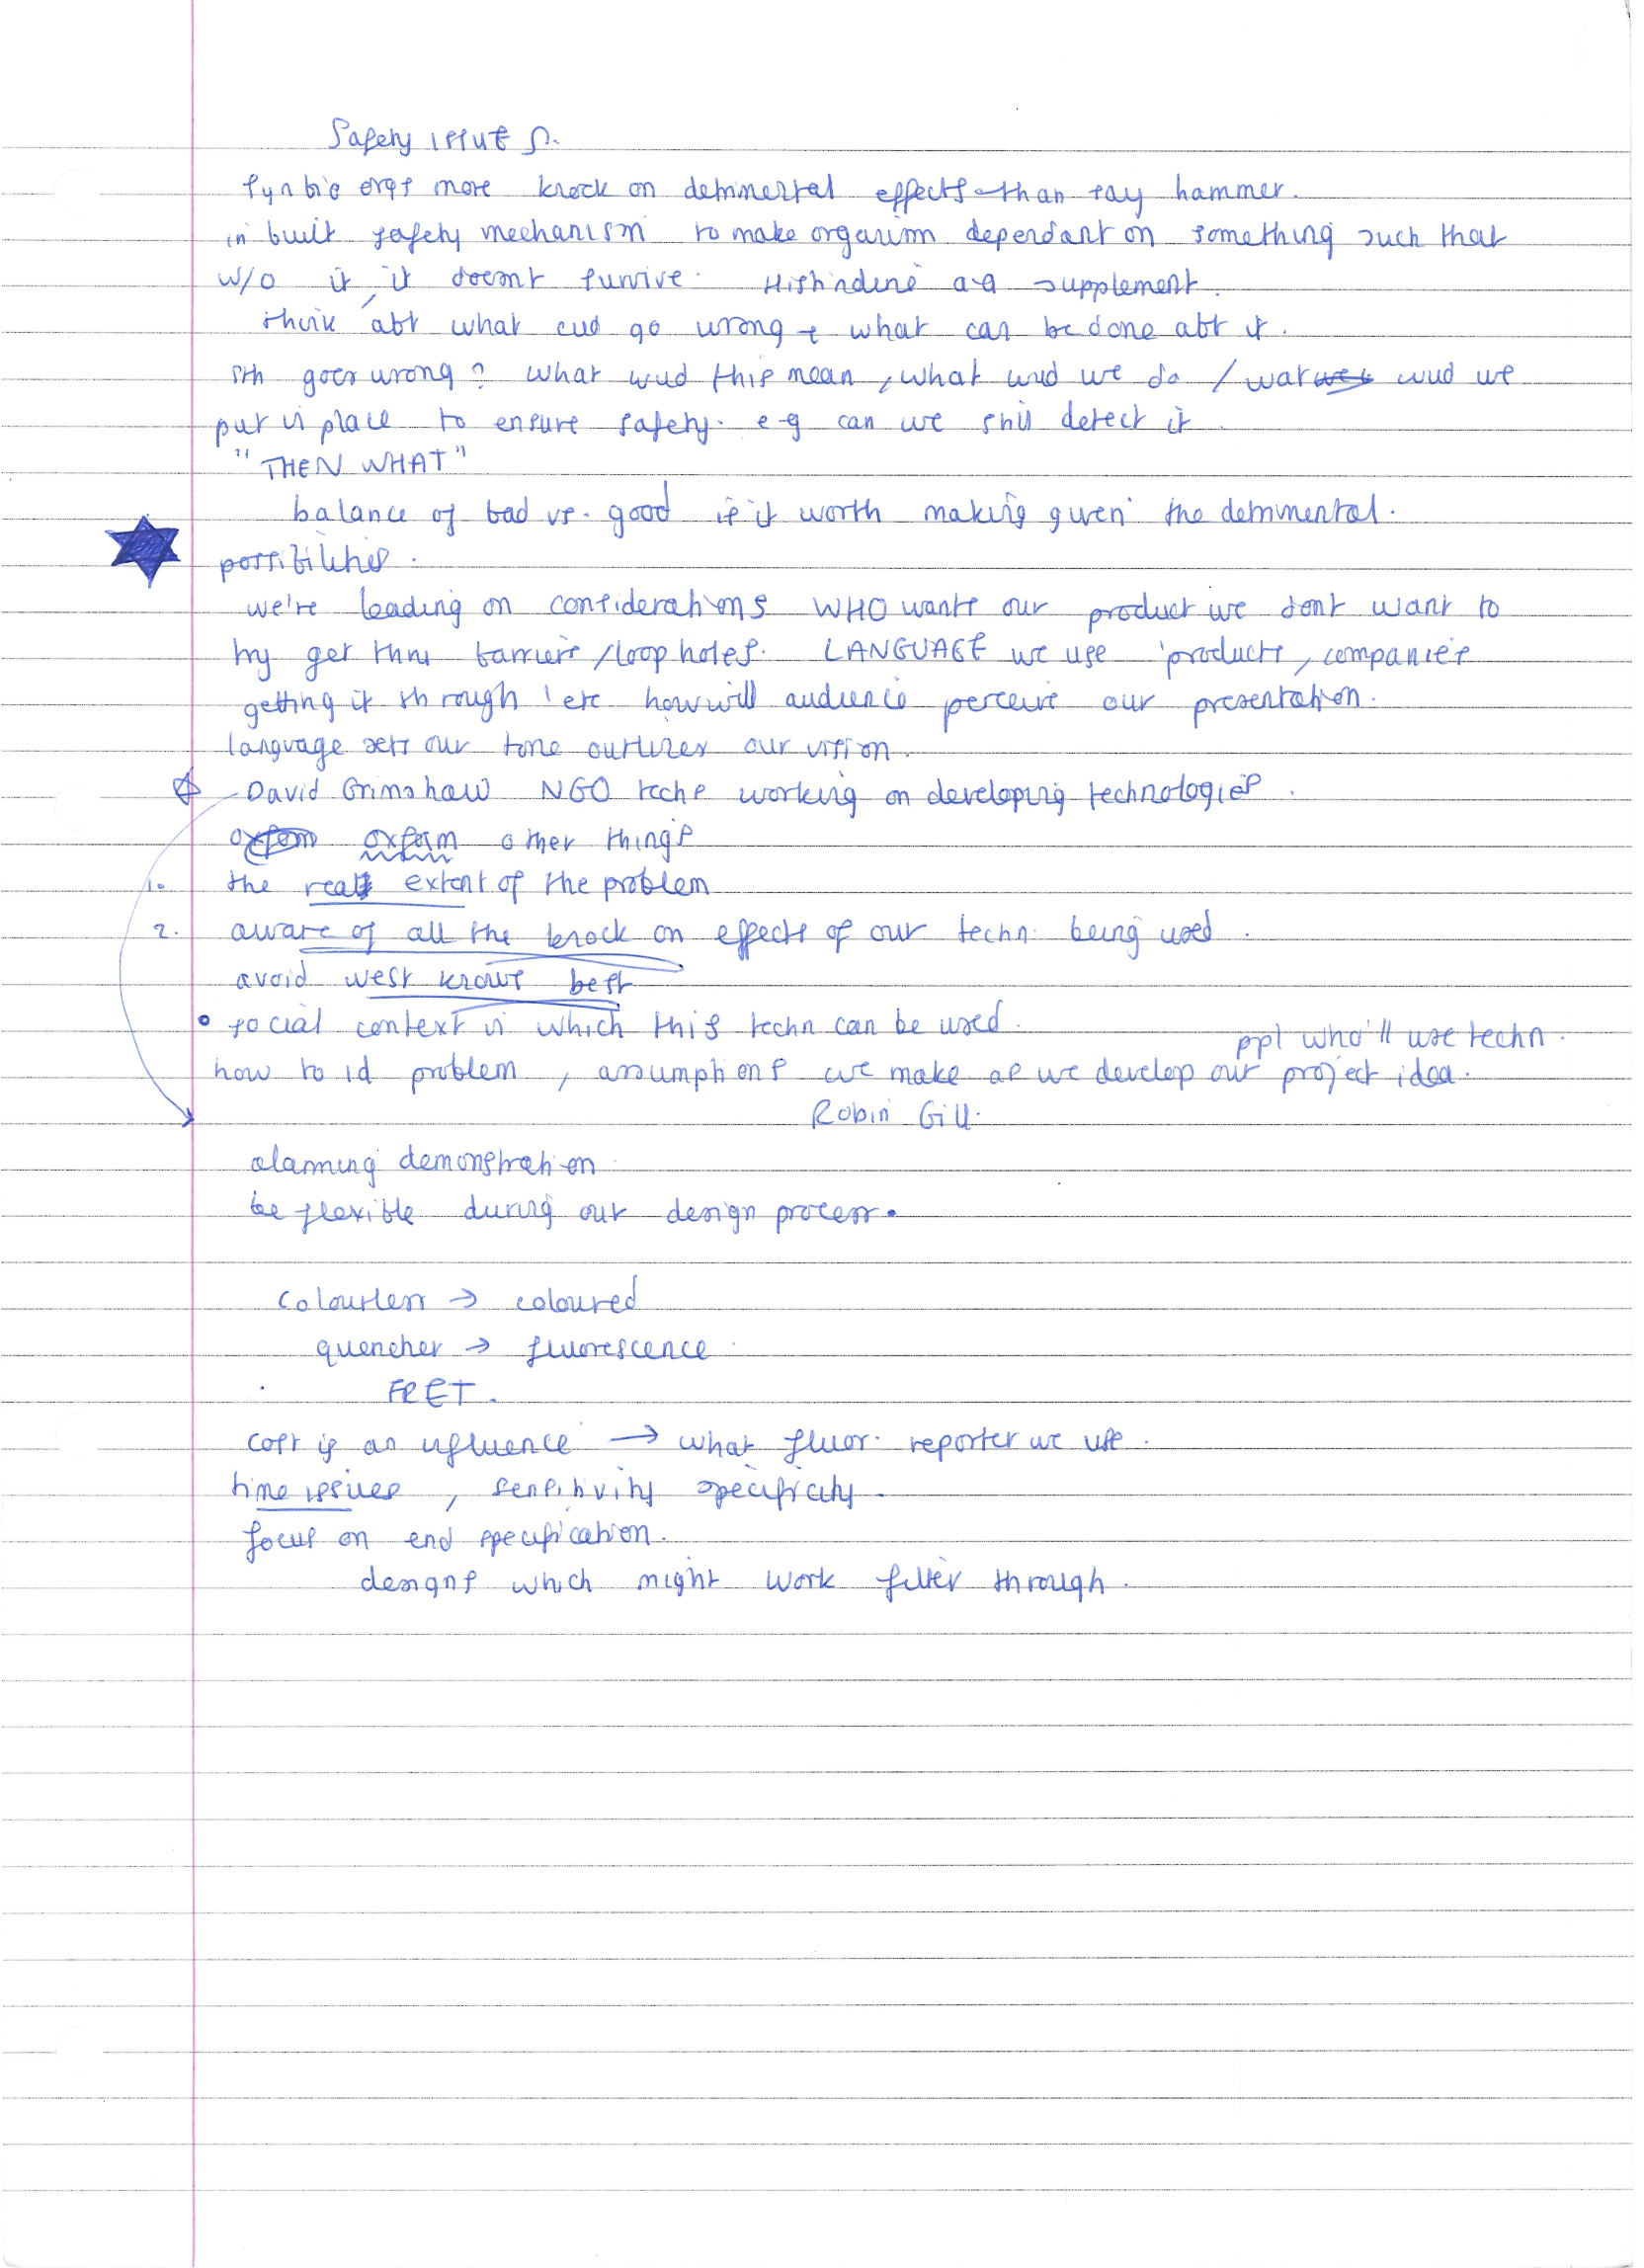 Safety issues.
Syn bio orgs more knock on detrimental effects than say hammer.
in built safety mechanism to make organism dependant on something such that
w/o it, it doesnt survive. Histindene a.a supplement.
think abt what cud go wrong + what can be done abt it.
sth goes wrong? what wud this mean, what wud we do / wat wud we
put in place to ensure safety. e-g can we still detect it.
"THEN WHAT"
balance of bad vs. good is it worth making given the detrimental.
possibilities.
we're leading on considerations WHO wants our product we dont want to
try get thru barriers/loop holes. LANGUAGE we use 'products, companies
getting it through' etc how will audience perceive our presentation.
language sets our tone outlines our vision.
David Grimshaw NGO techs working on developing technologies.
oxfam other things
1. the real extent of the problem
2. aware of all the knock on effects of our techn. being used.
avoid west knows best
• social context in which this techn can be used.
ppl who'll use techn.
how to id problem, assumptions we make as we develop our project idea.
Robin Gill.
alarming demonstration
be flexible during our design process.
colourless → coloured
quencher → fluorescence.
FRET.
cost is an influence → what fluor. reporter we use.
time issues, sensitivity specificity.
focus on end specification.
designs which might work filter through.